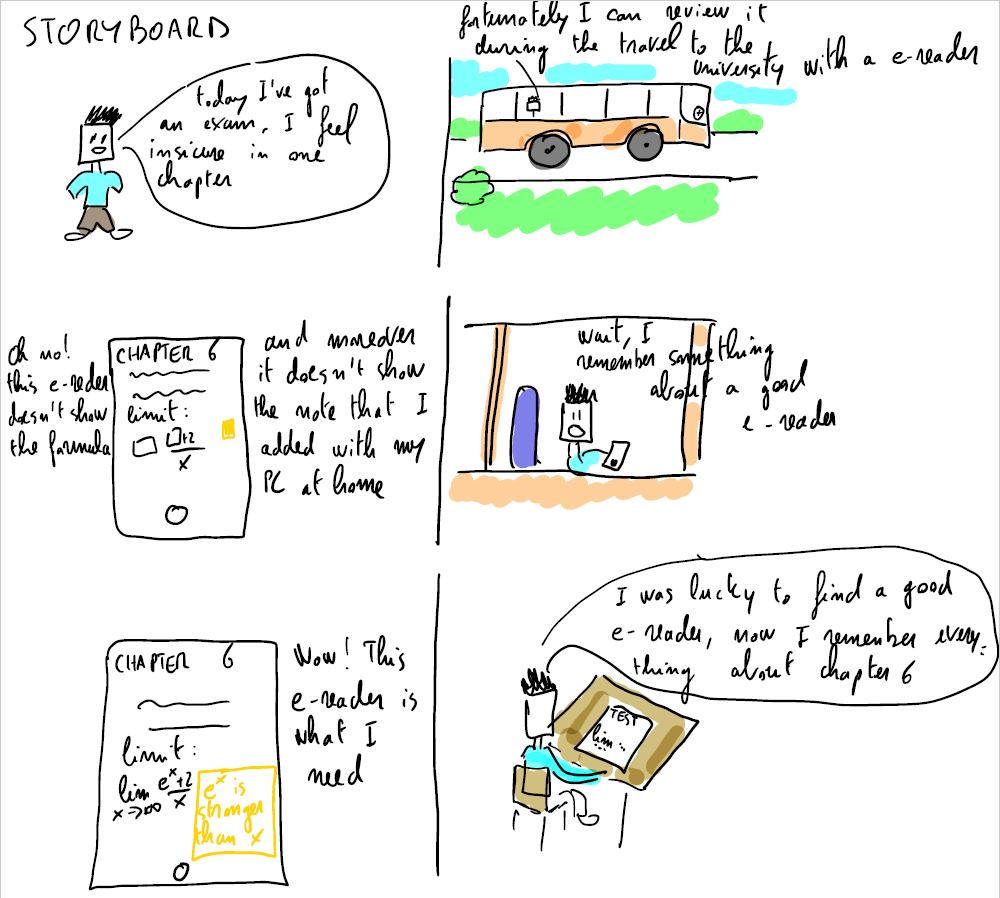 STORYBOARD
today I've got
an exam, I feel
insicure in one
chapter
fortunately I can review it
during the travel to the
university with a e-reader
Oh no!
this e-reder
doesn't show
the formula
CHAPTER 6
limit:
+2
x
and moreover
it doesn't show
the note that I
added with my
PC at home
wait, I
remember something
about a good
e-reader
CHAPTER 6
limit:
lim e^x+2
x→+∞ x
e^x is
stronger
than x
Wow! This
e-reader is
what I
need
I was lucky to find a good
e-reader, now I remember every-
thing about chapter 6
TEST
lim